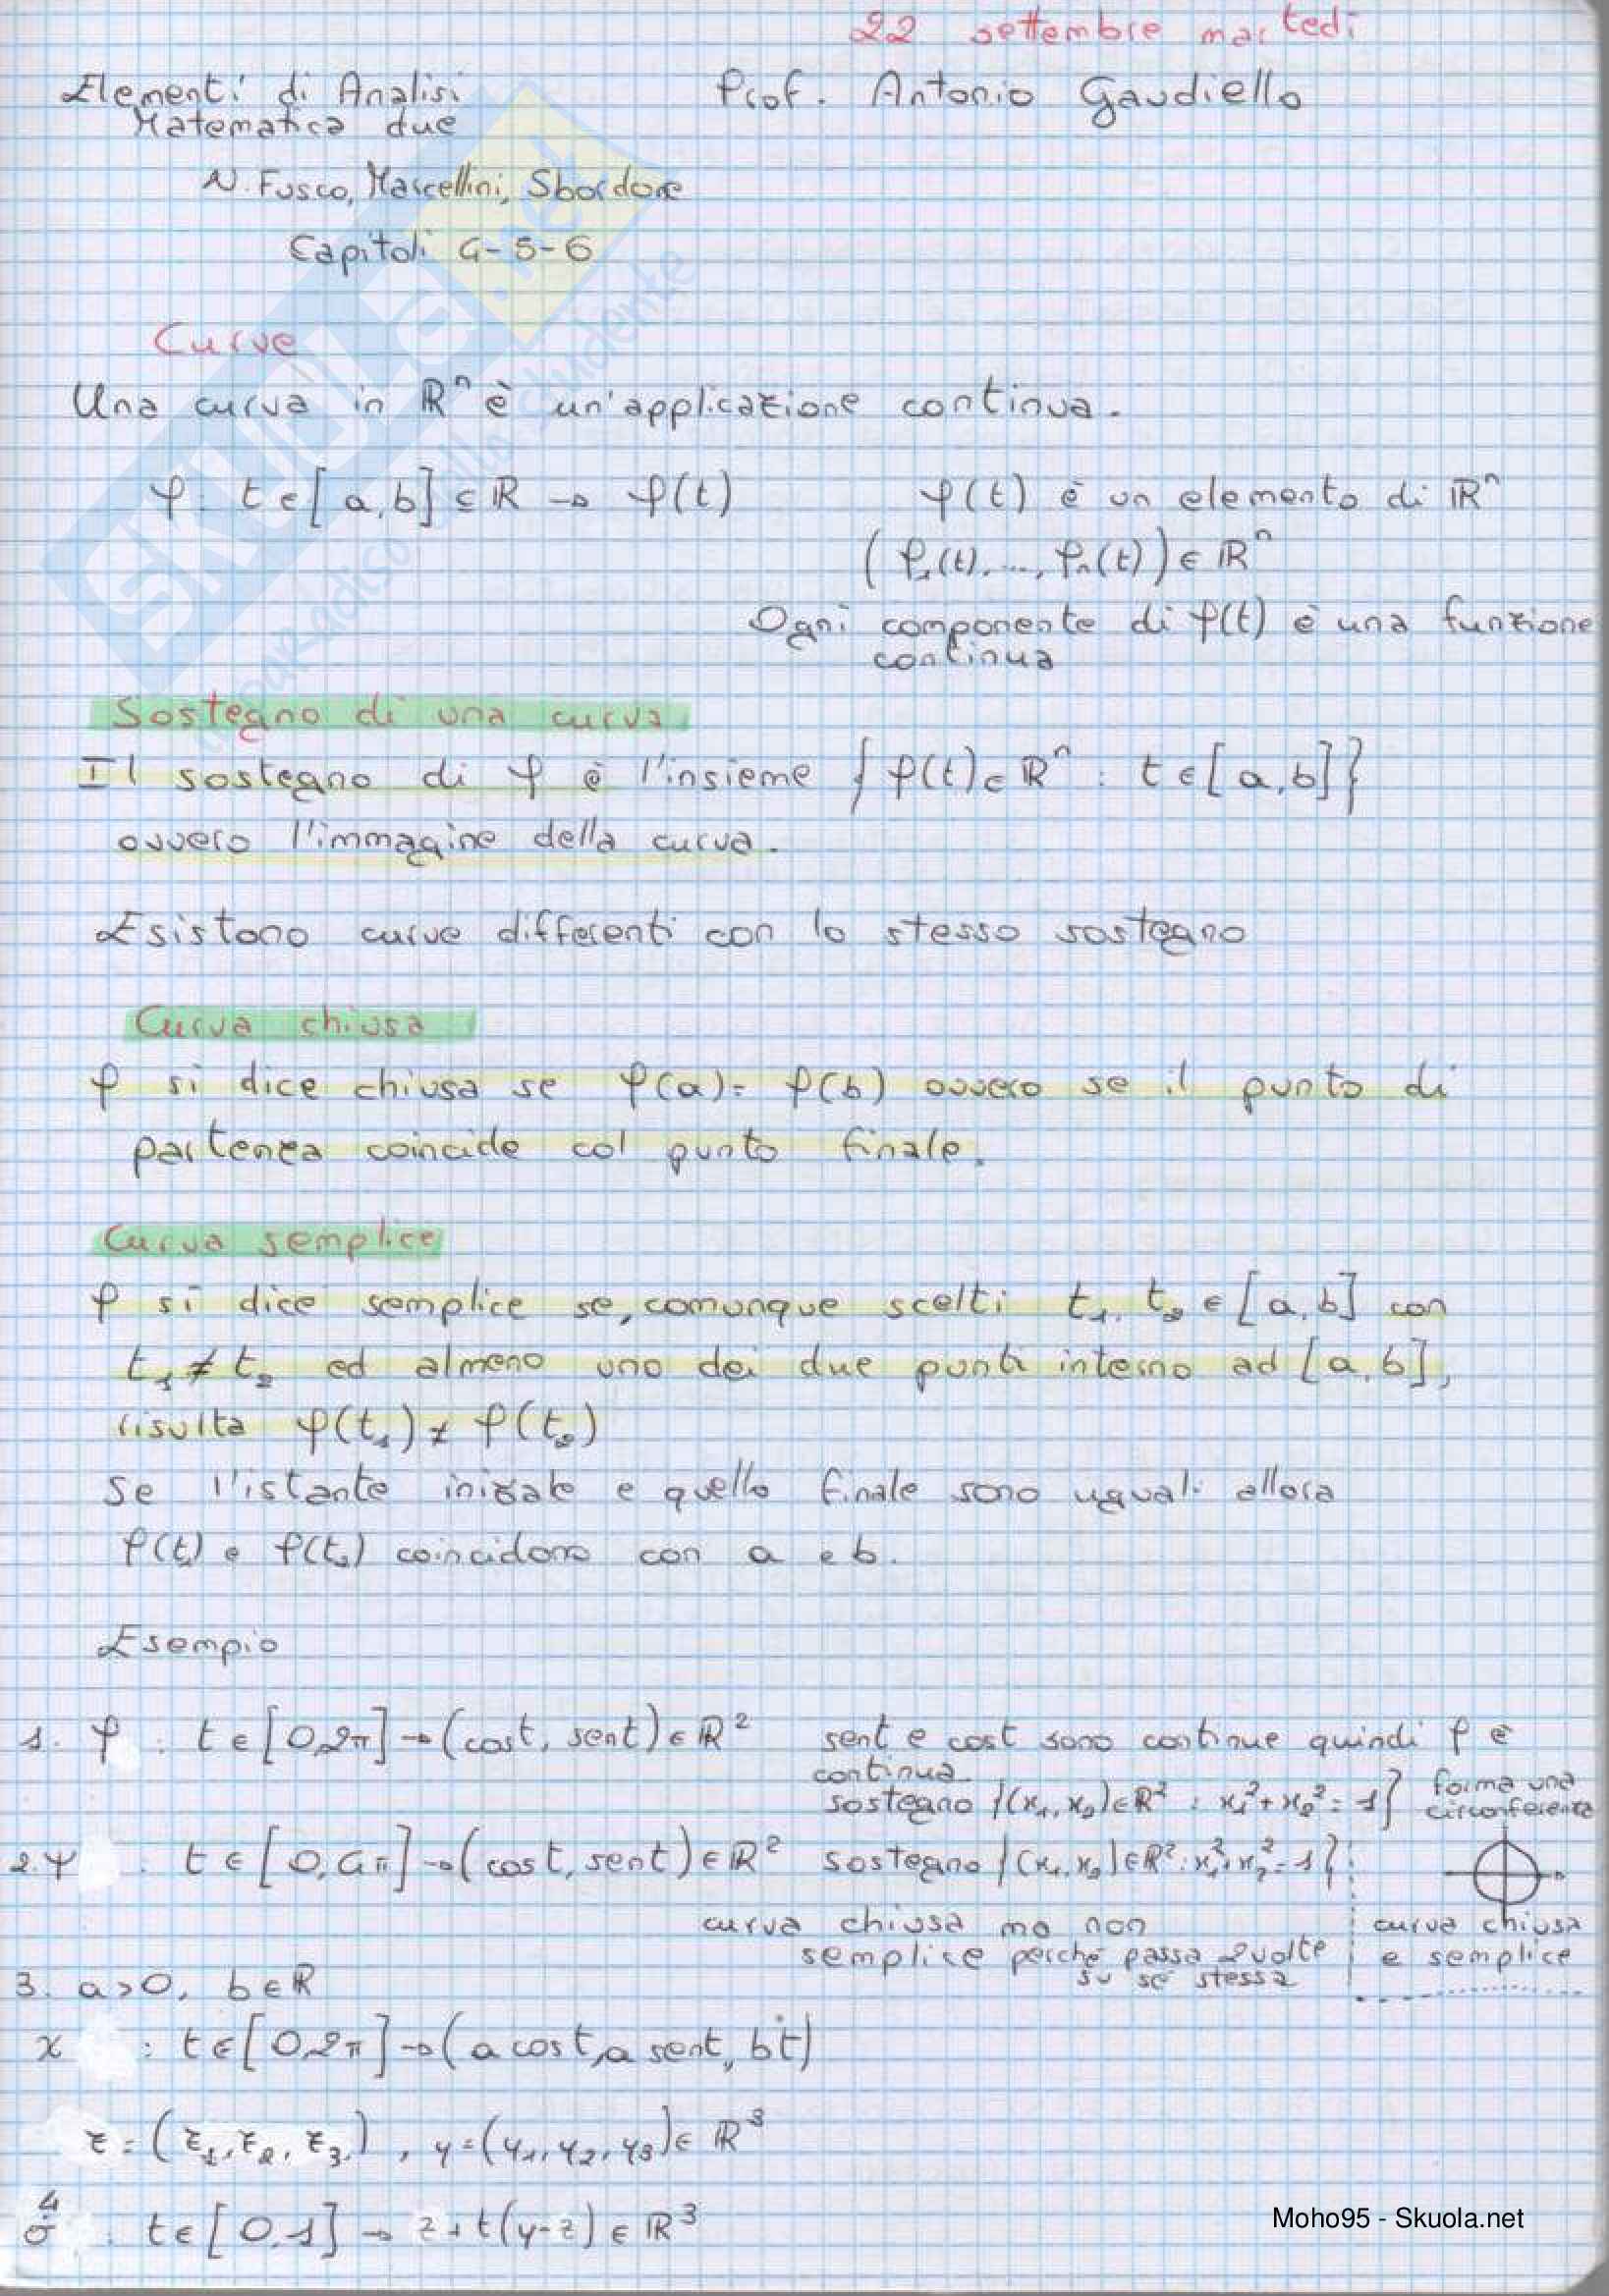 22 settembre martedì
Elementi di Analisi Prof. Antonio Gaudiello
Matematica due
N. Fusco, Marcellini, Sbordone
Capitoli 4-5-6
SKUOLA.me
il paradiso dello studente
Curve
Una curva in ℝⁿ è un'applicazione continua.
φ: t∈[a,b]⊆ℝ → φ(t) φ(t) è un elemento di ℝⁿ
(φ₁(t),...,φₙ(t))∈ℝⁿ
Ogni componente di φ(t) è una funzione
continua
Sostegno di una curva
Il sostegno di φ è l'insieme {φ(t)∈ℝⁿ : t∈[a,b]}
ovvero l'immagine della curva.
Esistono curve differenti con lo stesso sostegno
Curva chiusa
φ si dice chiusa se φ(a)=φ(b) ovvero se il punto di
partenza coincide col punto finale.
Curva semplice
φ si dice semplice se, comunque scelti t₁, t₂∈[a,b] con
t₁≠t₂ ed almeno uno dei due punti interno ad [a,b],
risulta φ(t₁)≠φ(t₂)
se l'istante iniziale e quello finale sono uguali allora
φ(t₁) e φ(t₂) coincidono con a e b.
Esempio
1. φ : t∈[0,2π]→(cost, sent)∈ℝ² sent e cost sono continue quindi φ è
continua
sostegno {(x₁,x₂)∈ℝ² : x₁²+x₂²=1} forma una
circonferenza
2. ψ : t∈[0,4π]→(cost, sent)∈ℝ² sostegno {(x₁,x₂)∈ℝ²: x₁²+x₂²=1}
curva chiusa ma non
semplice perché passa 2 volte
su se stessa
curva chiusa
e semplice
3. a>0, b∈ℝ
χ : t∈[0,2π]→(a cost, a sent, bt)
z=(z₁,z₂,z₃), y=(y₁,y₂,y₃)∈ℝ³
4.
σ : t∈[0,1]→ z+t(y-z)∈ℝ³
Moho95 - Skuola.net